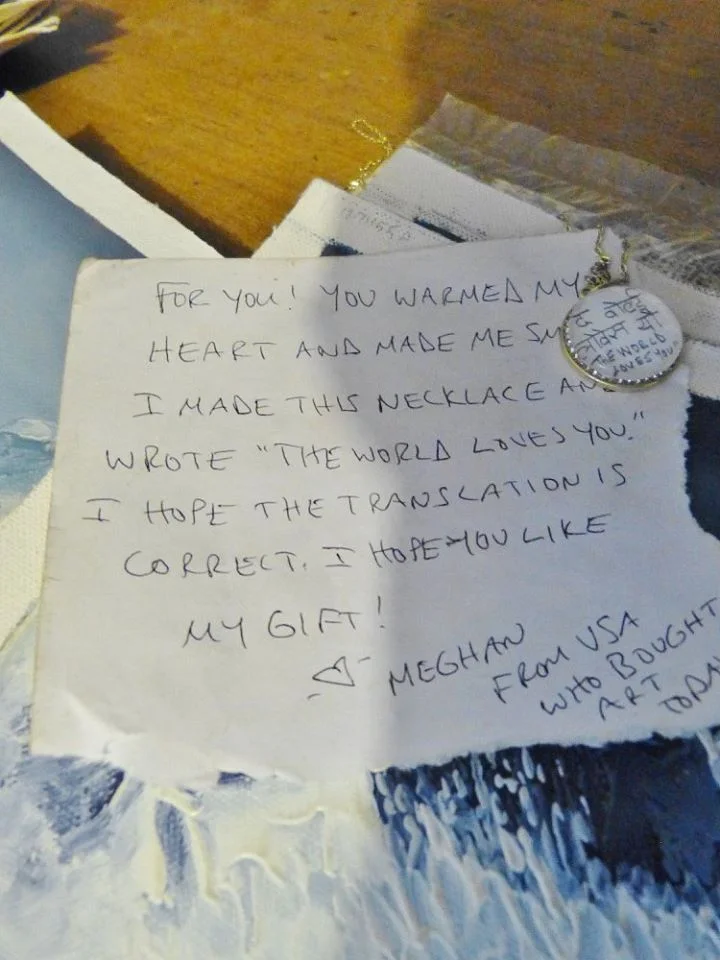 FOR YOU! YOU WARMED MY
HEART AND MADE ME
I MADE THIS NECKLACE
WROTE "THE WORLD LOVES YOU."
I HOPE THE TRANSLATION IS
CORRECT. I HOPE YOU LIKE
MY GIFT!
MEGHAN
FROM USA
WHO BOUGHT
ART
THE WORLD
LOVES YOU"